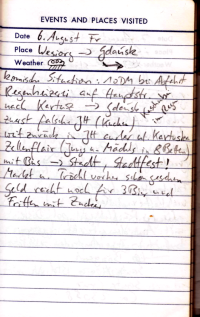 EVENTS AND PLACES VISITED
Date 6. August Fr
Place Wesiory → Gdańsk
Weather
komische Situation: 10 DM bei Abfahrt
auf Hauptstr. vor
nach → Gdańsk
zuerst falsche JH (Kirchen)
weit zurück in JH an der ul Kartuska
Zellenflair (Jungs u. Mädels in 8 Betten)
mit Bus → Stadt, Stadtfest!
Markt u. Trödl vorher schon gesehen
Geld reicht noch für 3 Bier und
Fritten mit Zucker